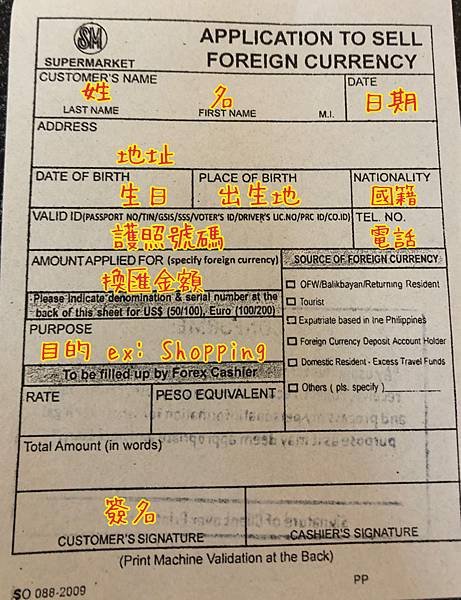 SM
SUPERMARKET
APPLICATION TO SELL
FOREIGN CURRENCY
CUSTOMER'S NAME
姓
名
LAST NAME
FIRST NAME
M.I.
DATE
日期
ADDRESS
地址
DATE OF BIRTH
生日
PLACE OF BIRTH
出生地
NATIONALITY
國籍
VALID ID(PASSPORT NO/TIN/GSIS/SSS/VOTER'S ID/DRIVER'S LIC.NO/PRC ID/CO.ID)
護照號碼
TEL. NO.
電話
AMOUNT APPLIED FOR (specify foreign currency)
換匯金額
Please indicate denomination & serial number at the
back of this sheet for US$ (50/100), Euro (100/200)
PURPOSE
目的 ex: Shopping
SOURCE OF FOREIGN CURRENCY
OFW/Balikbayan/Returning Resident
Tourist
Expatriate based in the Philippines
Foreign Currency Deposit Account Holder
Domestic Resident - Excess Travel Funds
Others ( pls. specify )
To be filled up by Forex Cashier
RATE
PESO EQUIVALENT
Total Amount (in words)
簽名
CUSTOMER'S SIGNATURE
CASHIER'S SIGNATURE
(Print Machine Validation at the Back)
SO 088-2009
PP